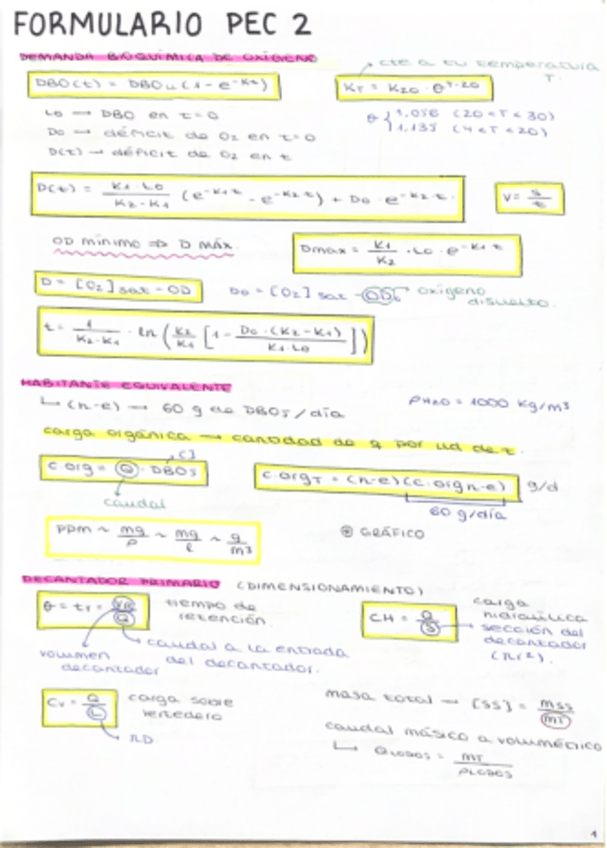 FORMULARIO PEC 2
DEMANDA BIOQUÍMICA DE OXÍGENO
DBO(t) = DBOu (1 - e^-Kt)
KT = K20 · θ^T-20
cte a tu temperatura T.
L0 → DBO en t=0
θ { 1,056 (20 < T < 30)
1,135 (4 < T < 20)
D0 → déficit de O2 en t=0
D(t) → déficit de O2 en t
D(t) = K1 · L0 / K2 - K1 (e^-K1·t - e^-K2·t) + D0 · e^-K2·t
V = s / t
OD mínimo ⇒ D MÁX.
Dmax = K1 / K2 · L0 · e^-K1·t
D = [O2]sat - OD
D0 = [O2]sat - OD0 oxígeno disuelto.
t = 1 / K2-K1 · ln (K2 / K1 [1 - D0 · (K2 - K1) / K1 · L0])
HABITANTE EQUIVALENTE
↳ (h-e) → 60 g de DBO5 / día
ρH2O = 1000 Kg/m³
carga orgánica → cantidad de g por ud de t.
C.org = Q · DBO5
[ ]
caudal
C.orgT = (h-e)(C.orgh-e) g/d
60 g/día
ppm ~ mg / ρ ~ mg / l ~ g / m³
⊛ GRÁFICO
DECANTADOR PRIMARIO (DIMENSIONAMIENTO)
θ = tr = VD / Q
tiempo de retención.
volumen decantador
caudal a la entrada del decantador.
CH = Q / S
carga hidráulica
sección del decantador (πr²).
Cv = Q / L
carga sobre vertedero
πD
masa total → [SS] = mss / mT
caudal másico a volumétrico
↳ QLODOS = mT / ρLODOS
1